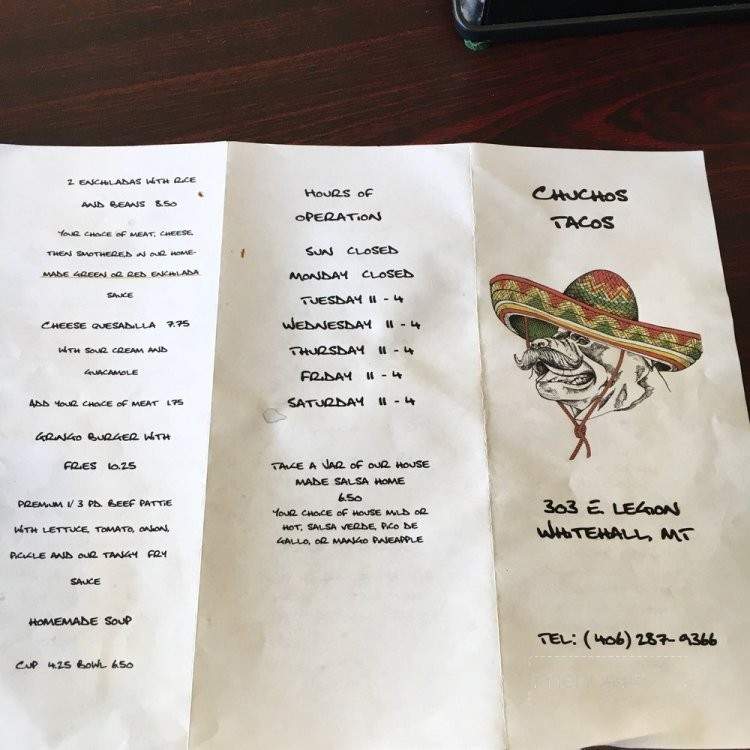 2 ENCHILADAS WITH RICE
AND BEANS 8.50
YOUR CHOICE OF MEAT, CHEESE,
THEN SMOTHERED IN OUR HOME-
MADE GREEN OR RED ENCHILADA
SAUCE
CHEESE QUESADILLA 7.75
WITH SOUR CREAM AND
GUACAMOLE
ADD YOUR CHOICE OF MEAT 1.75
GRINGO BURGER WITH
FRIES 10.25
PREMIUM 1/3 PD. BEEF PATTIE
WITH LETTUCE, TOMATO, ONION,
PICKLE AND OUR TANGY FRY
SAUCE
HOMEMADE SOUP
CUP 4.25 BOWL 6.50
HOURS OF
OPERATION
SUN CLOSED
MONDAY CLOSED
TUESDAY 11 - 4
WEDNESDAY 11 - 4
THURSDAY 11 - 4
FRIDAY 11 - 4
SATURDAY 11 - 4
TAKE A JAR OF OUR HOUSE
MADE SALSA HOME
6.50
YOUR CHOICE OF HOUSE MILD OR
HOT, SALSA VERDE, PICO DE
GALLO, OR MANGO PINEAPPLE
CHUCHOS
TACOS
303 E. LEGION
WHITEHALL, MT
TEL: (406) 287-9366